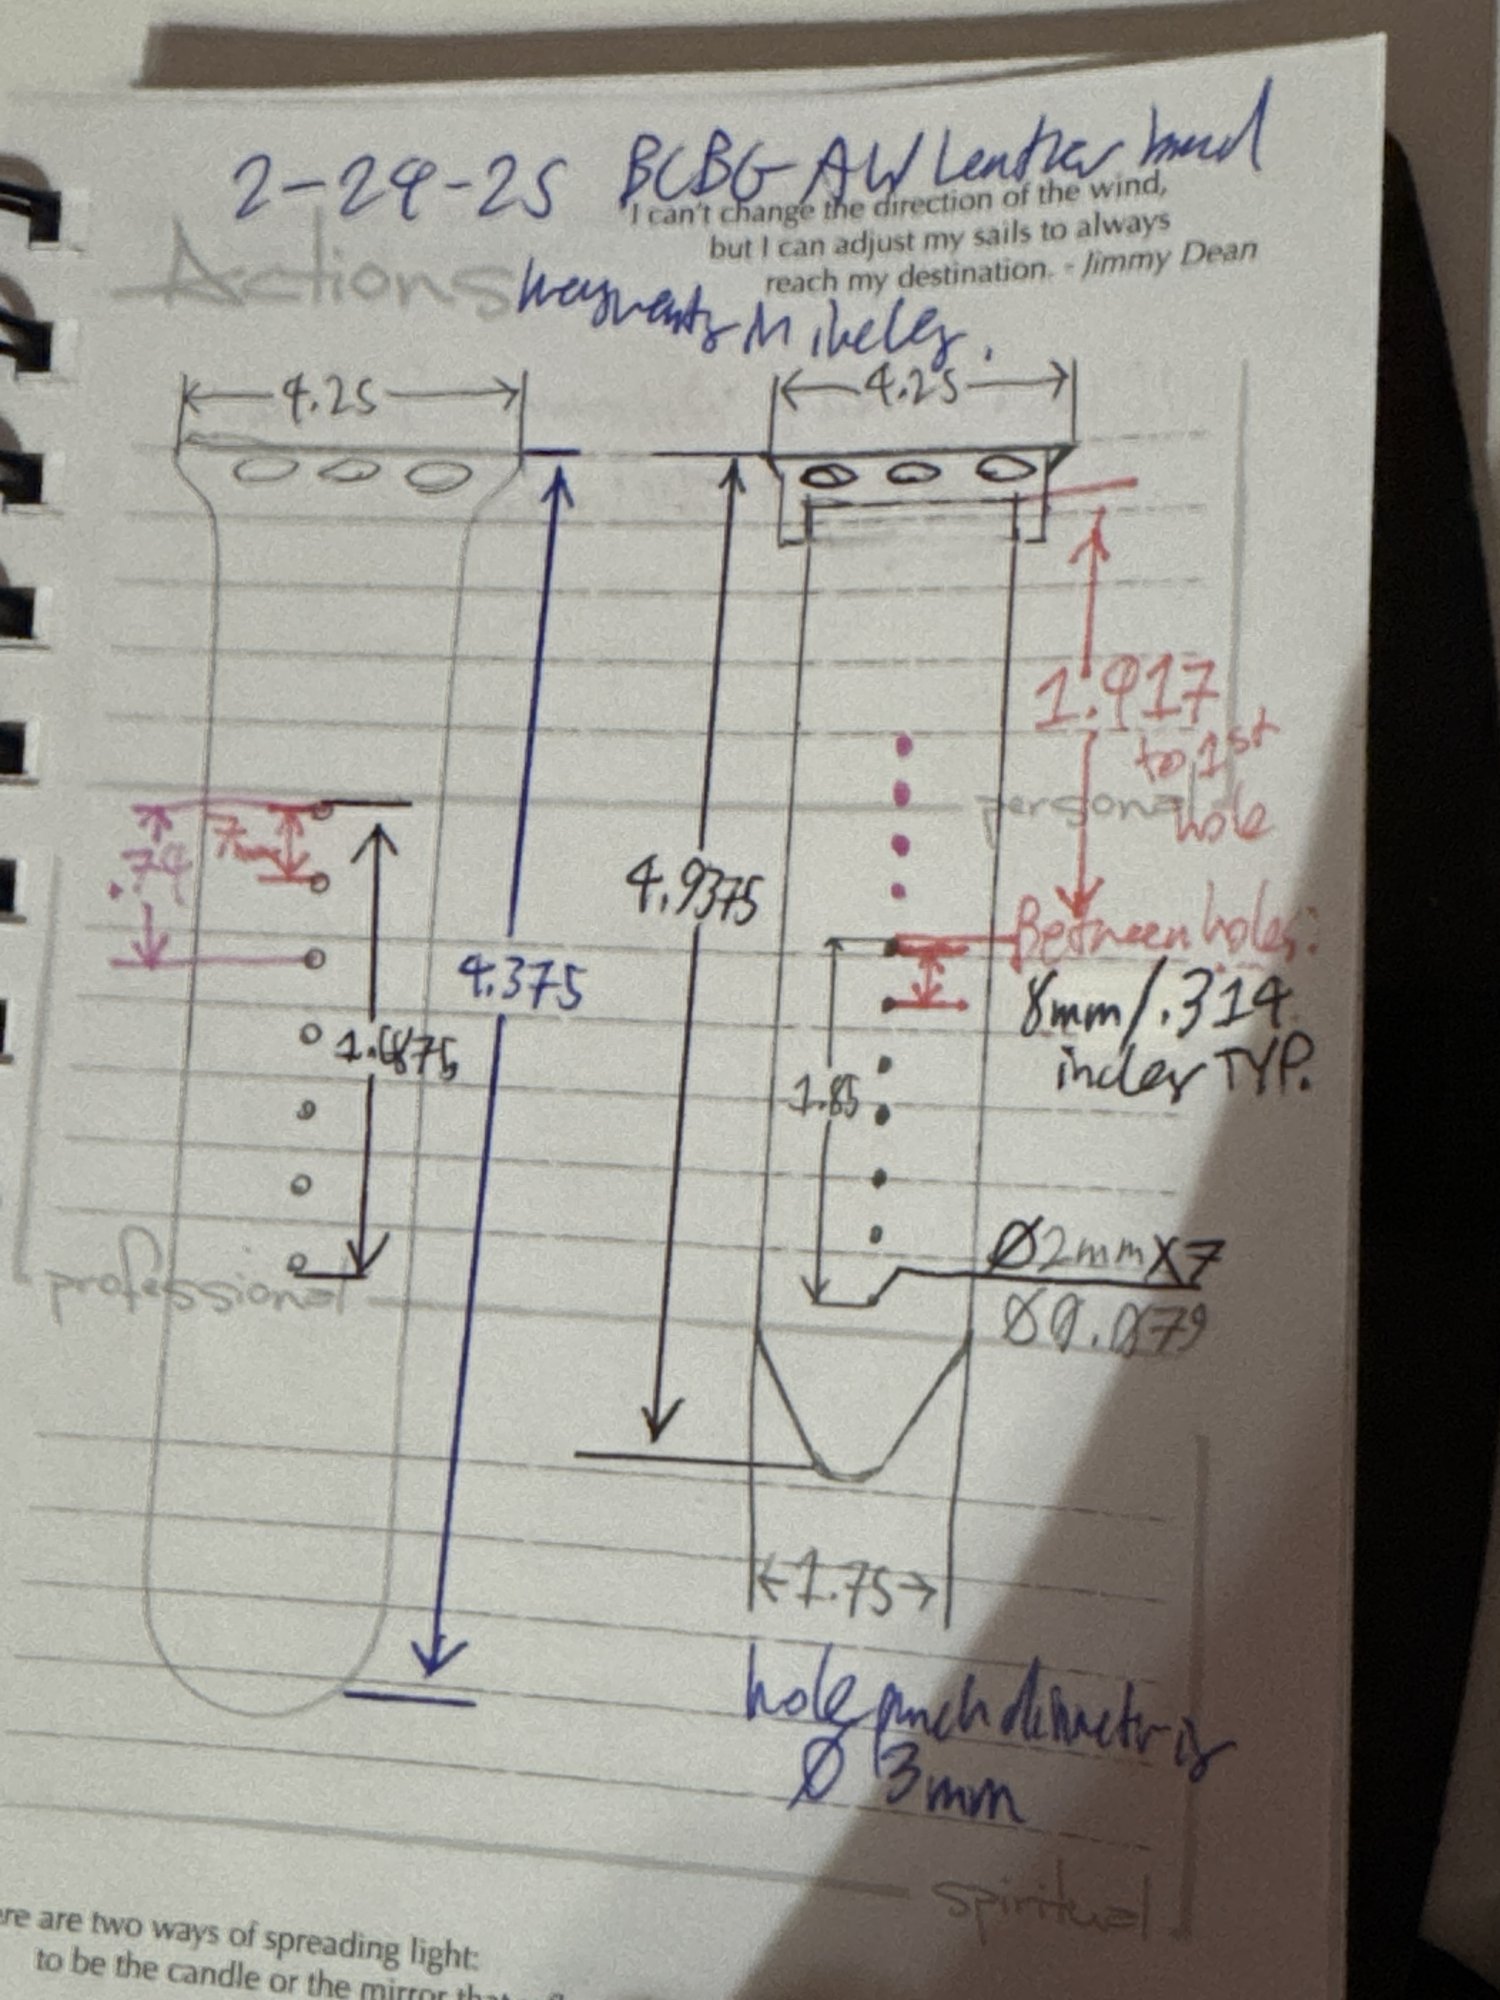 2-24-25 BCBG AW Leather band
I can't change the direction of the wind,
but I can adjust my sails to always
reach my destination. - Jimmy Dean
Actions
in inches.
4.25
4.25
1.917
to 1st
hole
personal
.74
7mm
4.9375
4.375
1.6875
Between holes:
8mm/.314
inches TYP.
1.85
Ø2mm X7
Ø0.079
professional
1.75
hole punch diameter is
Ø 3mm
spiritual
ere are two ways of spreading light:
to be the candle or the mirror that